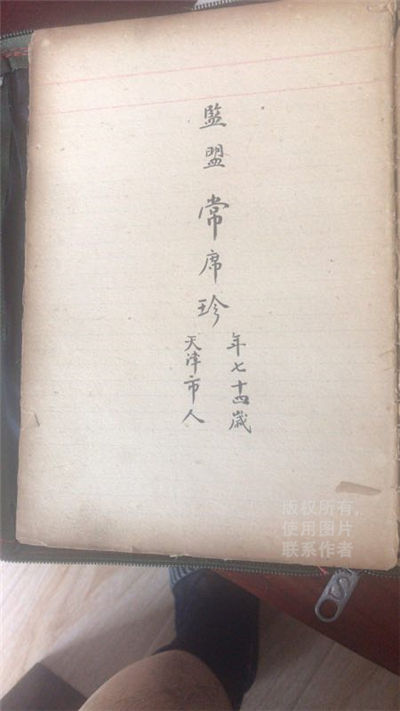 監盟常席珍
年七十四歲
天津市人
版权所有,
使用图片
联系作者